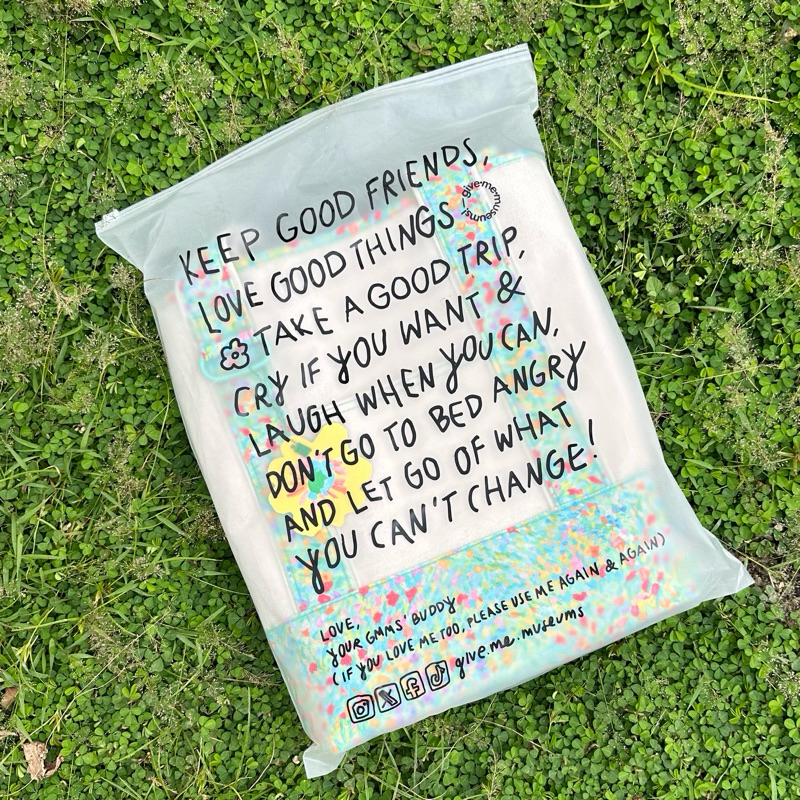 KEEP GOOD FRIENDS,
LOVE GOOD THINGS
give·me·museums!
TAKE A GOOD TRIP,
CRY IF YOU WANT &
LAUGH WHEN YOU CAN,
DON'T GO TO BED ANGRY
AND LET GO OF WHAT
YOU CAN'T CHANGE!
LOVE,
YOUR GMMS' BUDDY
(IF YOU LOVE ME TOO, PLEASE USE ME AGAIN & AGAIN)
give.me.museums